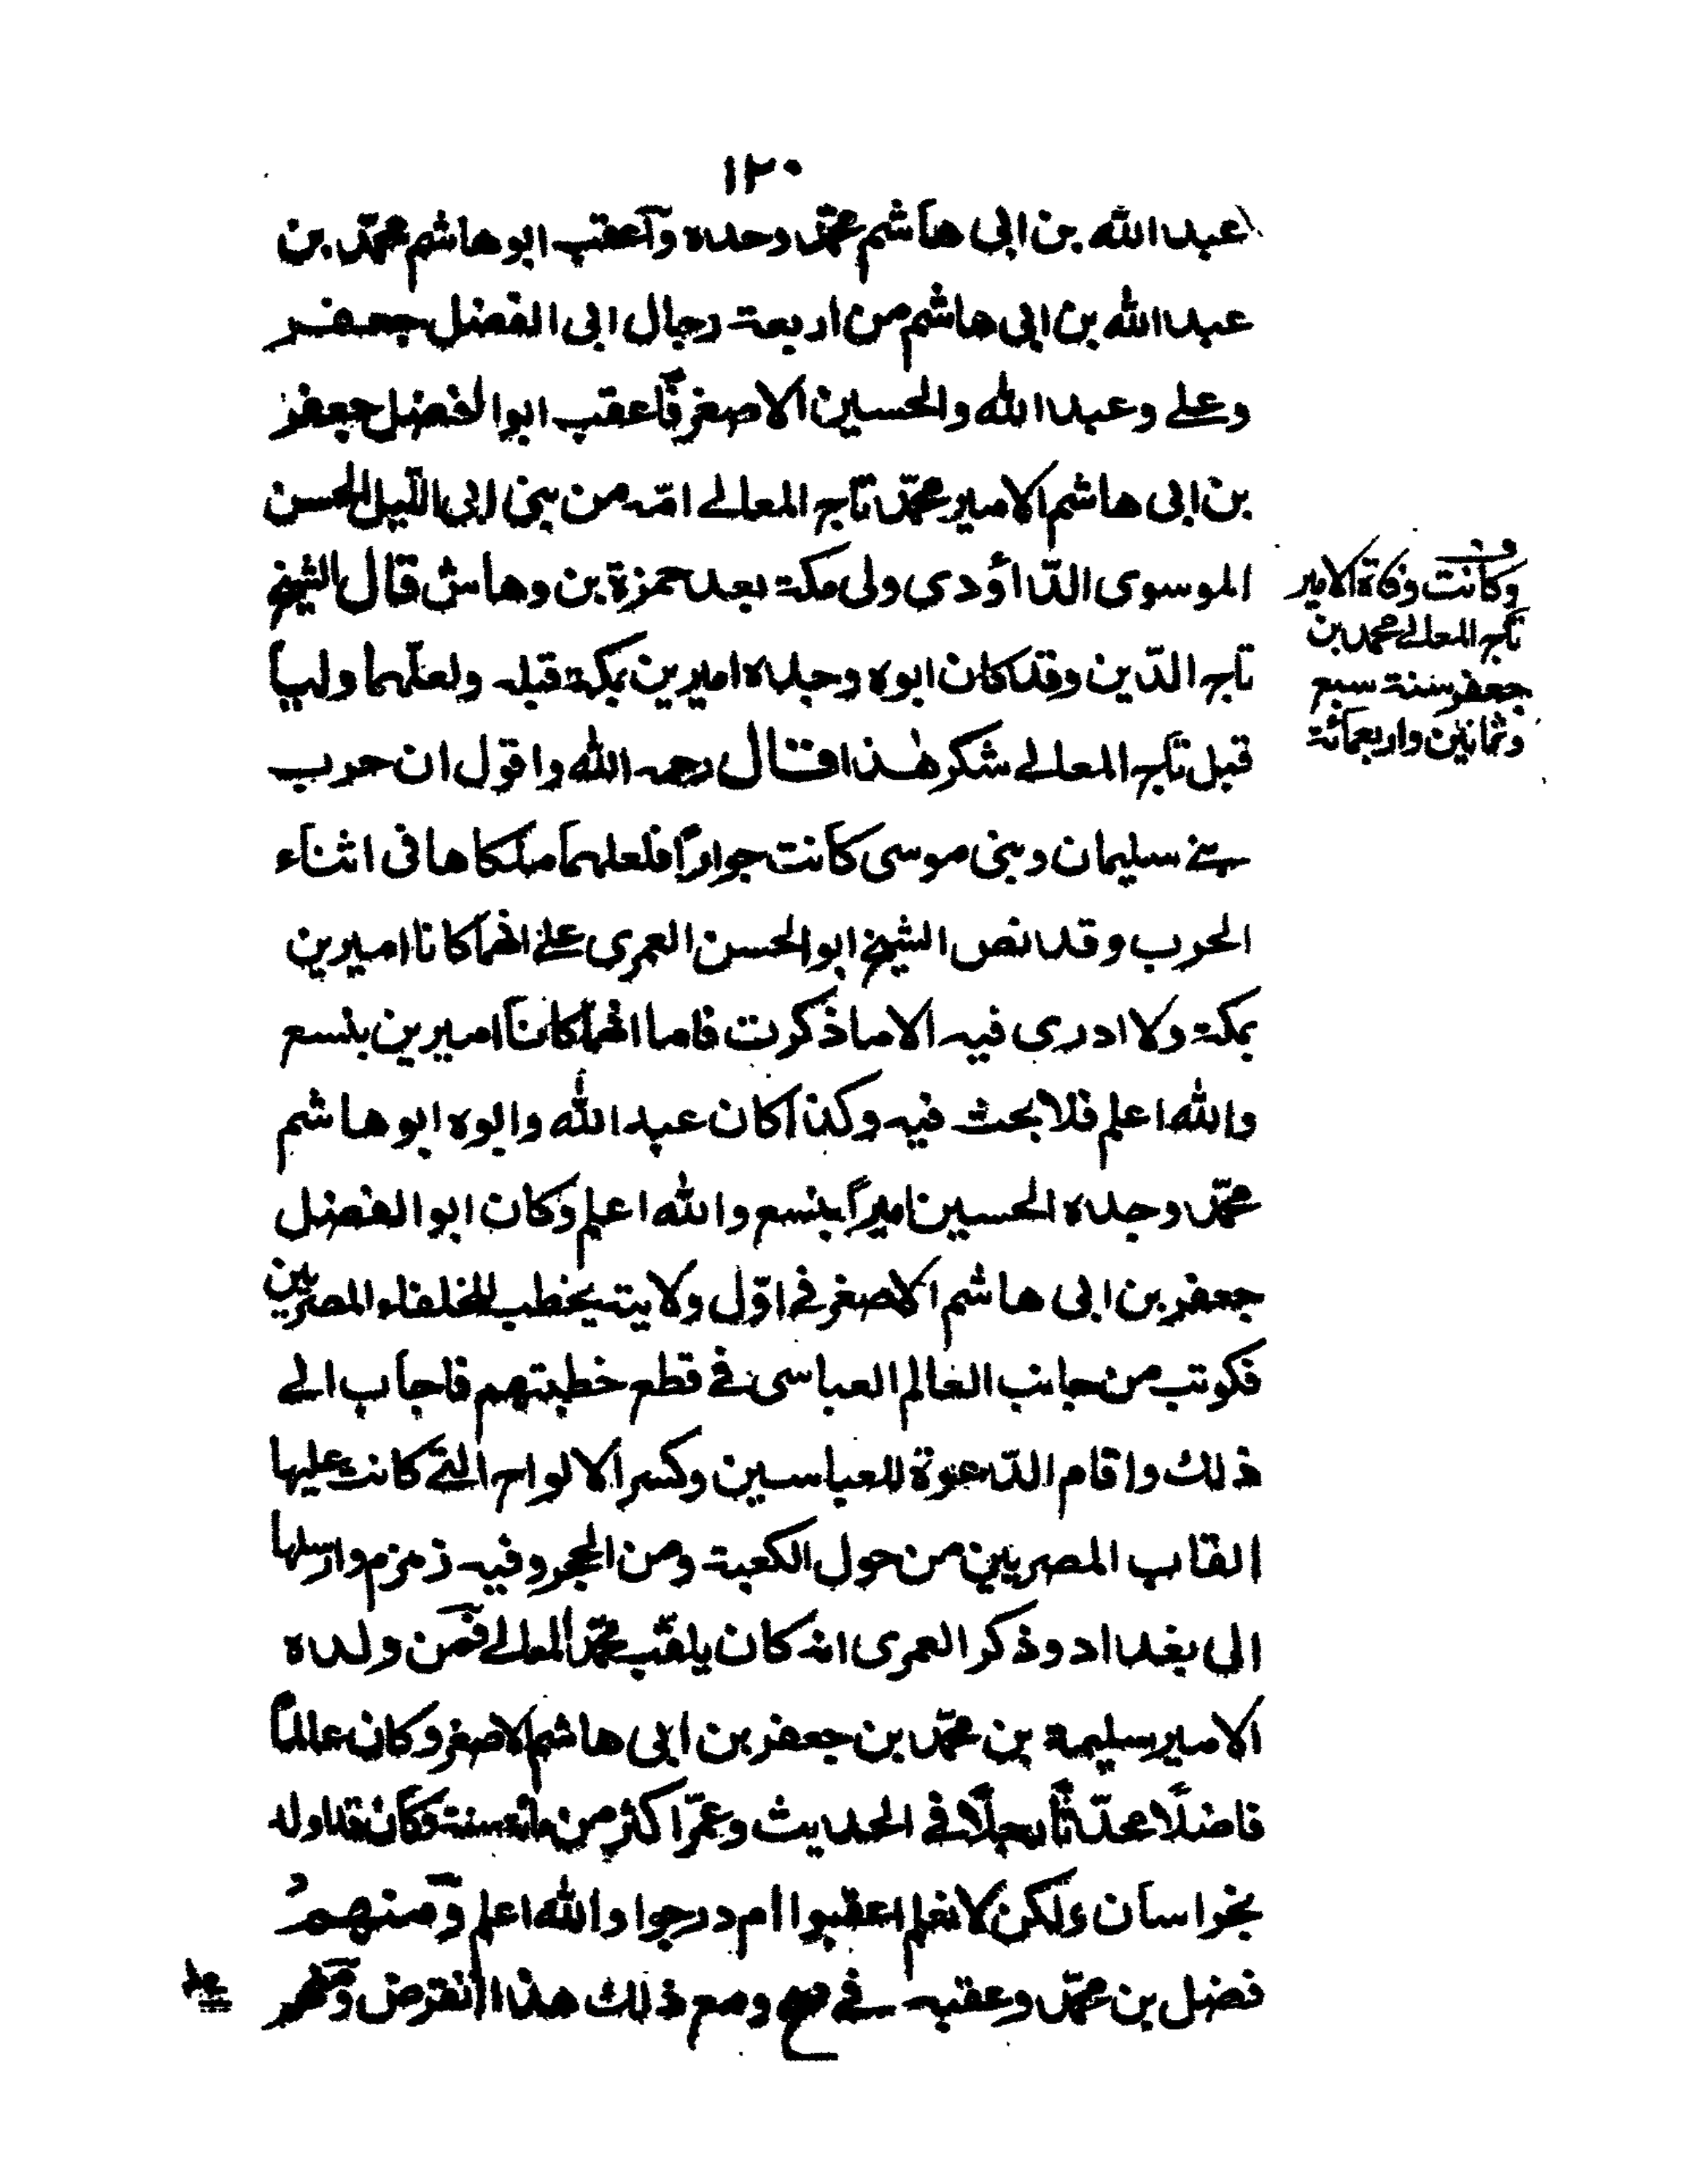 ١٢٠
عبد الله بن ابى هاشم محمّد وحده وآعقب ابو هاشم محمّد بن
عبد الله بن ابى هاشم من اربعة رجال ابى الفضل جعفر
وعلے وعبد الله والحسين الاصغر فآعقب ابوا لفضل جعفر
بن ابى هاشم الامير محمّد تاج المعالے امّه من بنى ابى اللّيل الحسن
الموسوى الدّاؤدي ولى مكة بعد حمزة بن وهاس قال الشيخ
تاج الدّين وقد كان ابوه وجده اميرين بمكة قبله ولعلّهما وليا
قبل تاج المعالے شكر هٰذا قال رحمه الله واقول ان حرب
بنے سليمان وبنى موسى كانت جواراً فلعلهما ملكاها فى اثناء
الحرب وقد نص الشيخ ابو الحسن العمرى علے انهما كانا اميرين
بمكة ولا ادرى فيه الا ما ذكرت فاما انهما كانا اميرين بنسع
والله اعلم فلا بحث فيه وكذا كان عبد الله وابوه ابو هاشم
محمّد وجده الحسين اميراً بنسع والله اعلم وكان ابو الفضل
جعفر بن ابى هاشم الاصغر فے اوّل ولايته يخطب للخلفاء المصريين
فكوتب من جانب العالم العباسى فے قطع خطبتهم فاجاب الے
ذلك واقام الدّعوة للعباسين وكسر الالواح التے كانت عليها
القاب المصريين من حول الكعبة ومن الحجر وفيه زمزم وارسلها
الى بغداد وذكر العمرى انه كان يلقّب محمّد المعالے فمن ولده
الامير سليمة بن محمّد بن جعفر بن ابى هاشم الاصغر وكان عالماً
فاضلًا محدّثاً رجلًا فے الحديث وعمّر اكثر من مائة سنة وكان قد اولد
بخراسان ولكن لا نعلم اعقبوا ام درجوا والله اعلم ومنهم
فضل بن محمّد وعقبه فے صح ومع ذلك هذا انقرض ومنهم
وكانت وفاة الامير
تاج المعالے محمد بن
جعفر سنة سبع
وثمانين واربعمائة